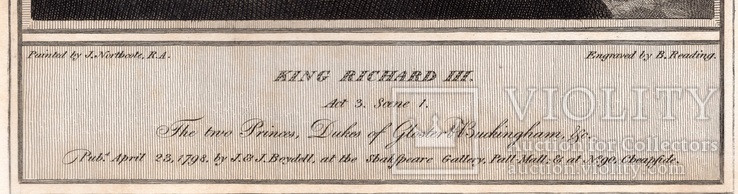 Painted by J. Northcote, R.A.
Engraved by B. Reading.
KING RICHARD III.
Act 3. Scene 1.
The two Princes, Dukes of Gloster, Buckingham, &c.
Pub.d April 23, 1798, by J. & J. Boydell, at the Shakspeare Gallery, Pall Mall; & at No. 90, Cheapside.
VIOLITY
Auction for Collectors
violity.com